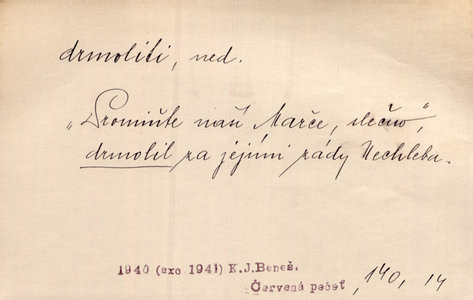 drmoliti, ned.
„Promiňte naší Marče, slečno“,
drmolil za jejími zády Nechleba.
1940 (exc 1941) K.J.Beneš.
Červená pečeť, 140, 14